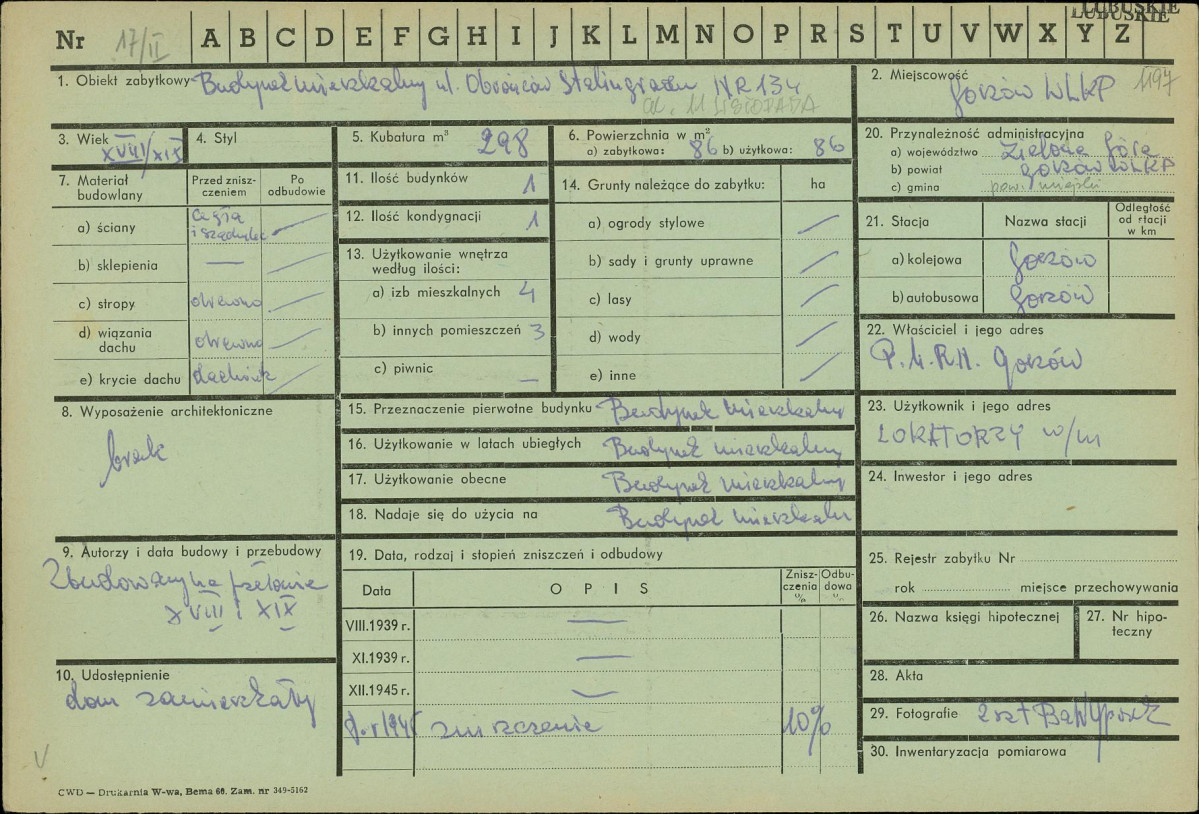 LUBUSKIE
LUBUSKIE
Nr 17/II A B C D E F G H I J K L M N O P R S T U V W X Y Z
1. Obiekt zabytkowy Budynek mieszkalny ul. Obrońców Stalingradu NR 134
al. 11 LISTOPADA
2. Miejscowość 1197
Gorzów WLKP
3. Wiek XVIII/XIX
4. Styl
5. Kubatura m³ 298
6. Powierzchnia w m²
a) zabytkowa: 86 b) użytkowa: 86
20. Przynależność administracyjna
a) województwo Zielona Góra
b) powiat Gorzów WLKP
c) gmina pow. miejski
7. Materiał budowlany
Przed zniszczeniem
Po odbudowie
a) ściany cegła i szachulec
b) sklepienia —
c) stropy drewno
d) wiązania dachu drewno
e) krycie dachu dachówk
11. Ilość budynków 1
12. Ilość kondygnacji 1
13. Użytkowanie wnętrza według ilości:
a) izb mieszkalnych 4
b) innych pomieszczeń 3
c) piwnic —
14. Grunty należące do zabytku: ha
a) ogrody stylowe
b) sady i grunty uprawne
c) lasy
d) wody
e) inne
21. Stacja Nazwa stacji Odległość od stacji w km
a) kolejowa Gorzów
b) autobusowa Gorzów
22. Właściciel i jego adres
P.M.R.N. Gorzów
8. Wyposażenie architektoniczne
brak
15. Przeznaczenie pierwotne budynku Budynek mieszkalny
16. Użytkowanie w latach ubiegłych Budynek mieszkalny
17. Użytkowanie obecne Budynek mieszkalny
18. Nadaje się do użycia na Budynek mieszkaln
23. Użytkownik i jego adres
LOKATORZY w/m
24. Inwestor i jego adres
9. Autorzy i data budowy i przebudowy
Zbudowany na przełomie
XVIII i XIX
19. Data, rodzaj i stopień zniszczeń i odbudowy
Data OPIS Zniszczenia % Odbudowa %
VIII.1939 r. —
XI.1939 r. —
XII.1945 r. —
zniszczenie 10%
25. Rejestr zabytku Nr
rok miejsce przechowywania
26. Nazwa księgi hipotecznej
27. Nr hipoteczny
10. Udostępnienie
dom zamieszkały
28. Akta
29. Fotografie 2 szt
30. Inwentaryzacja pomiarowa
V
CWD — Drukarnia W-wa, Bema 60. Zam. nr 349-5162